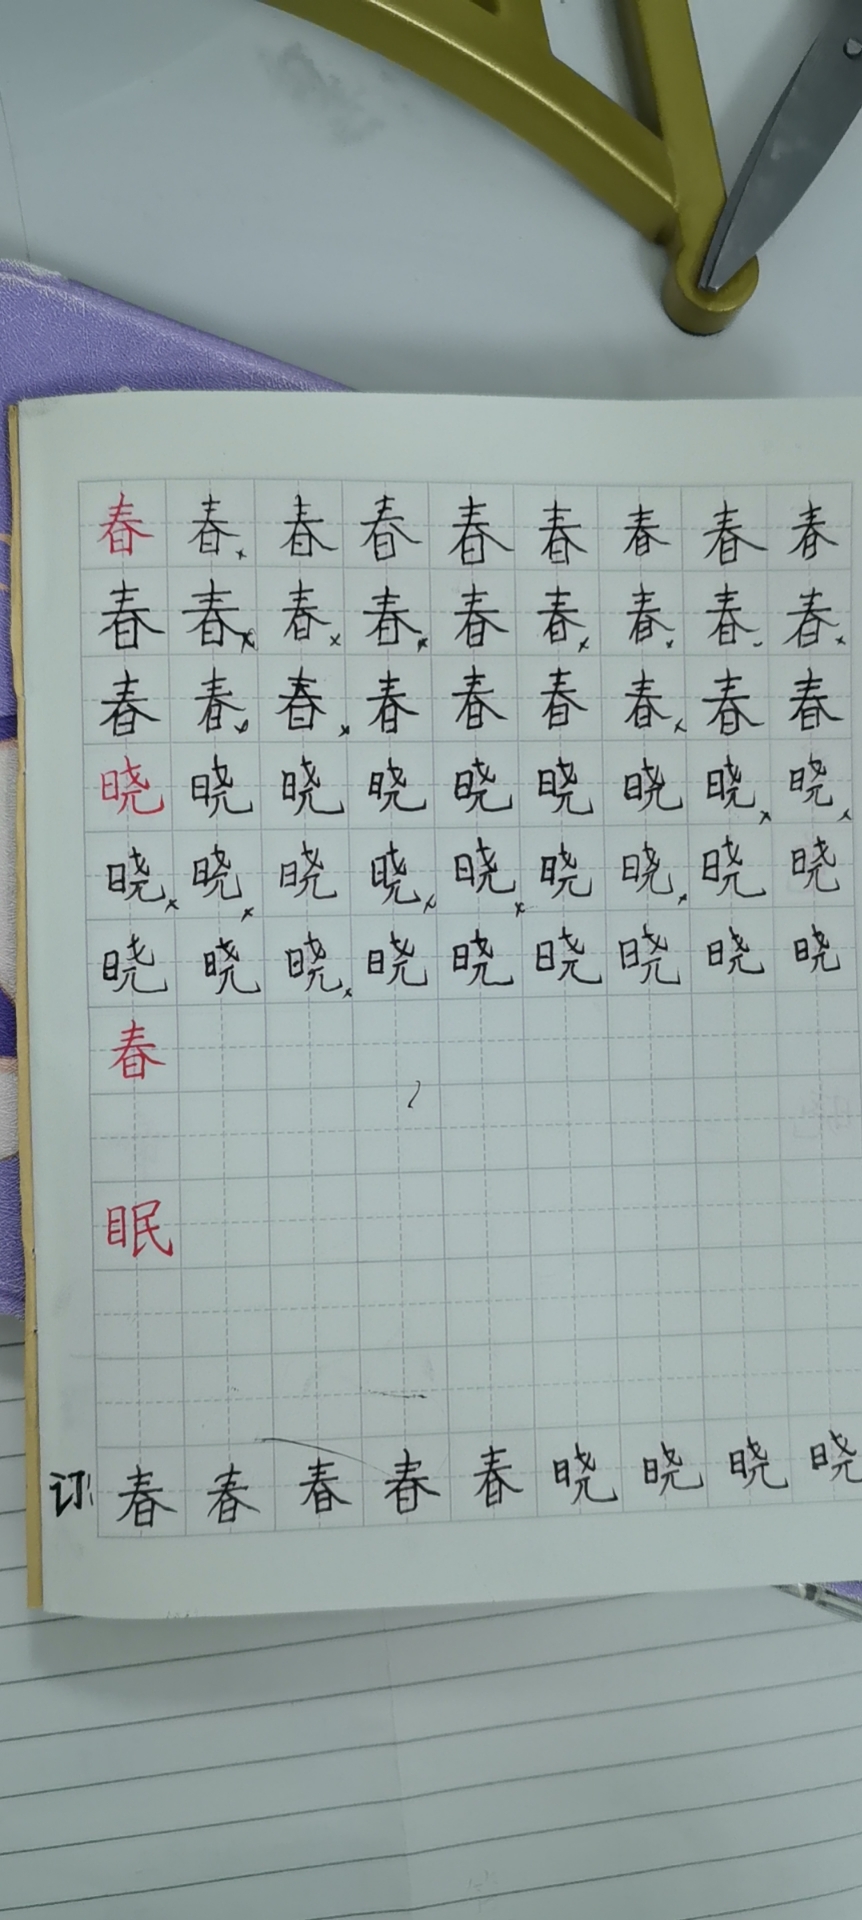 春春春春春春春春春
春春春春春春春春春
春春春春春春春春春
晓晓晓晓晓晓晓晓晓
晓晓晓晓晓晓晓晓晓
晓晓晓晓晓晓晓晓晓
春
眠
订:春春春春春晓晓晓晓